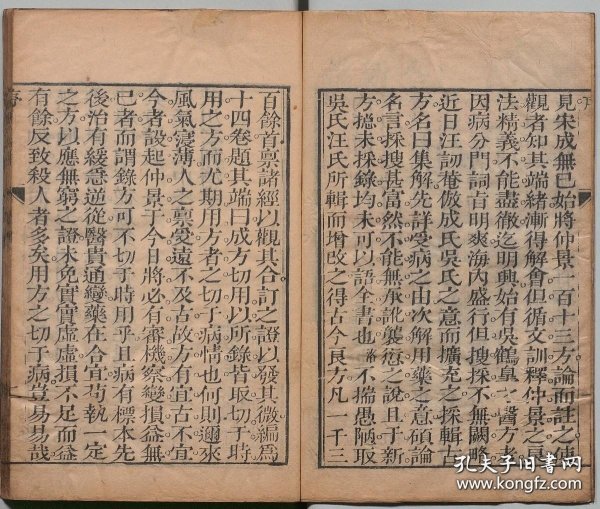 見宋成無已始將仲景一百十三方論而註之使
觀者知其端緒漸得解會但循文訓釋仲景之良
法精義不能盡徹迄明興始有吳鶴臯之醫方考
因病分門詞旨明爽海內盛行但搜採不無闕略
近日汪訒菴倣成氏吳氏之意而擴充之採輯古
方名曰集解先詳受病之由次解用藥之意碩論
名言採搜甚富然不能無承訛襲舛之說且于新
方揔未採錄均未可以語全書也洛不揣愚陋取
吳氏汪氏所輯而增改之得古今良方凡一千三
百餘首禀諸經以觀其合訂之證以發其微編爲
十四卷題其端曰成方切用以所錄皆取切于時
用之方而尤期用方者之切于病情也何則邇來
風氣寖薄人之禀受遠不及古故方有宜古不宜
今者設起仲景于今日將必有審機察變損益無
已者而謂錄方可不切于時用乎且病有標本先
後治有緩急逆從醫貴通變藥在合宜苟執一定
之方以應無窮之證未免實實虛虛損不足而益
有餘反致殺人者多矣用方之切于病豈易易哉
序
孔夫子旧书网
www.kongfz.com